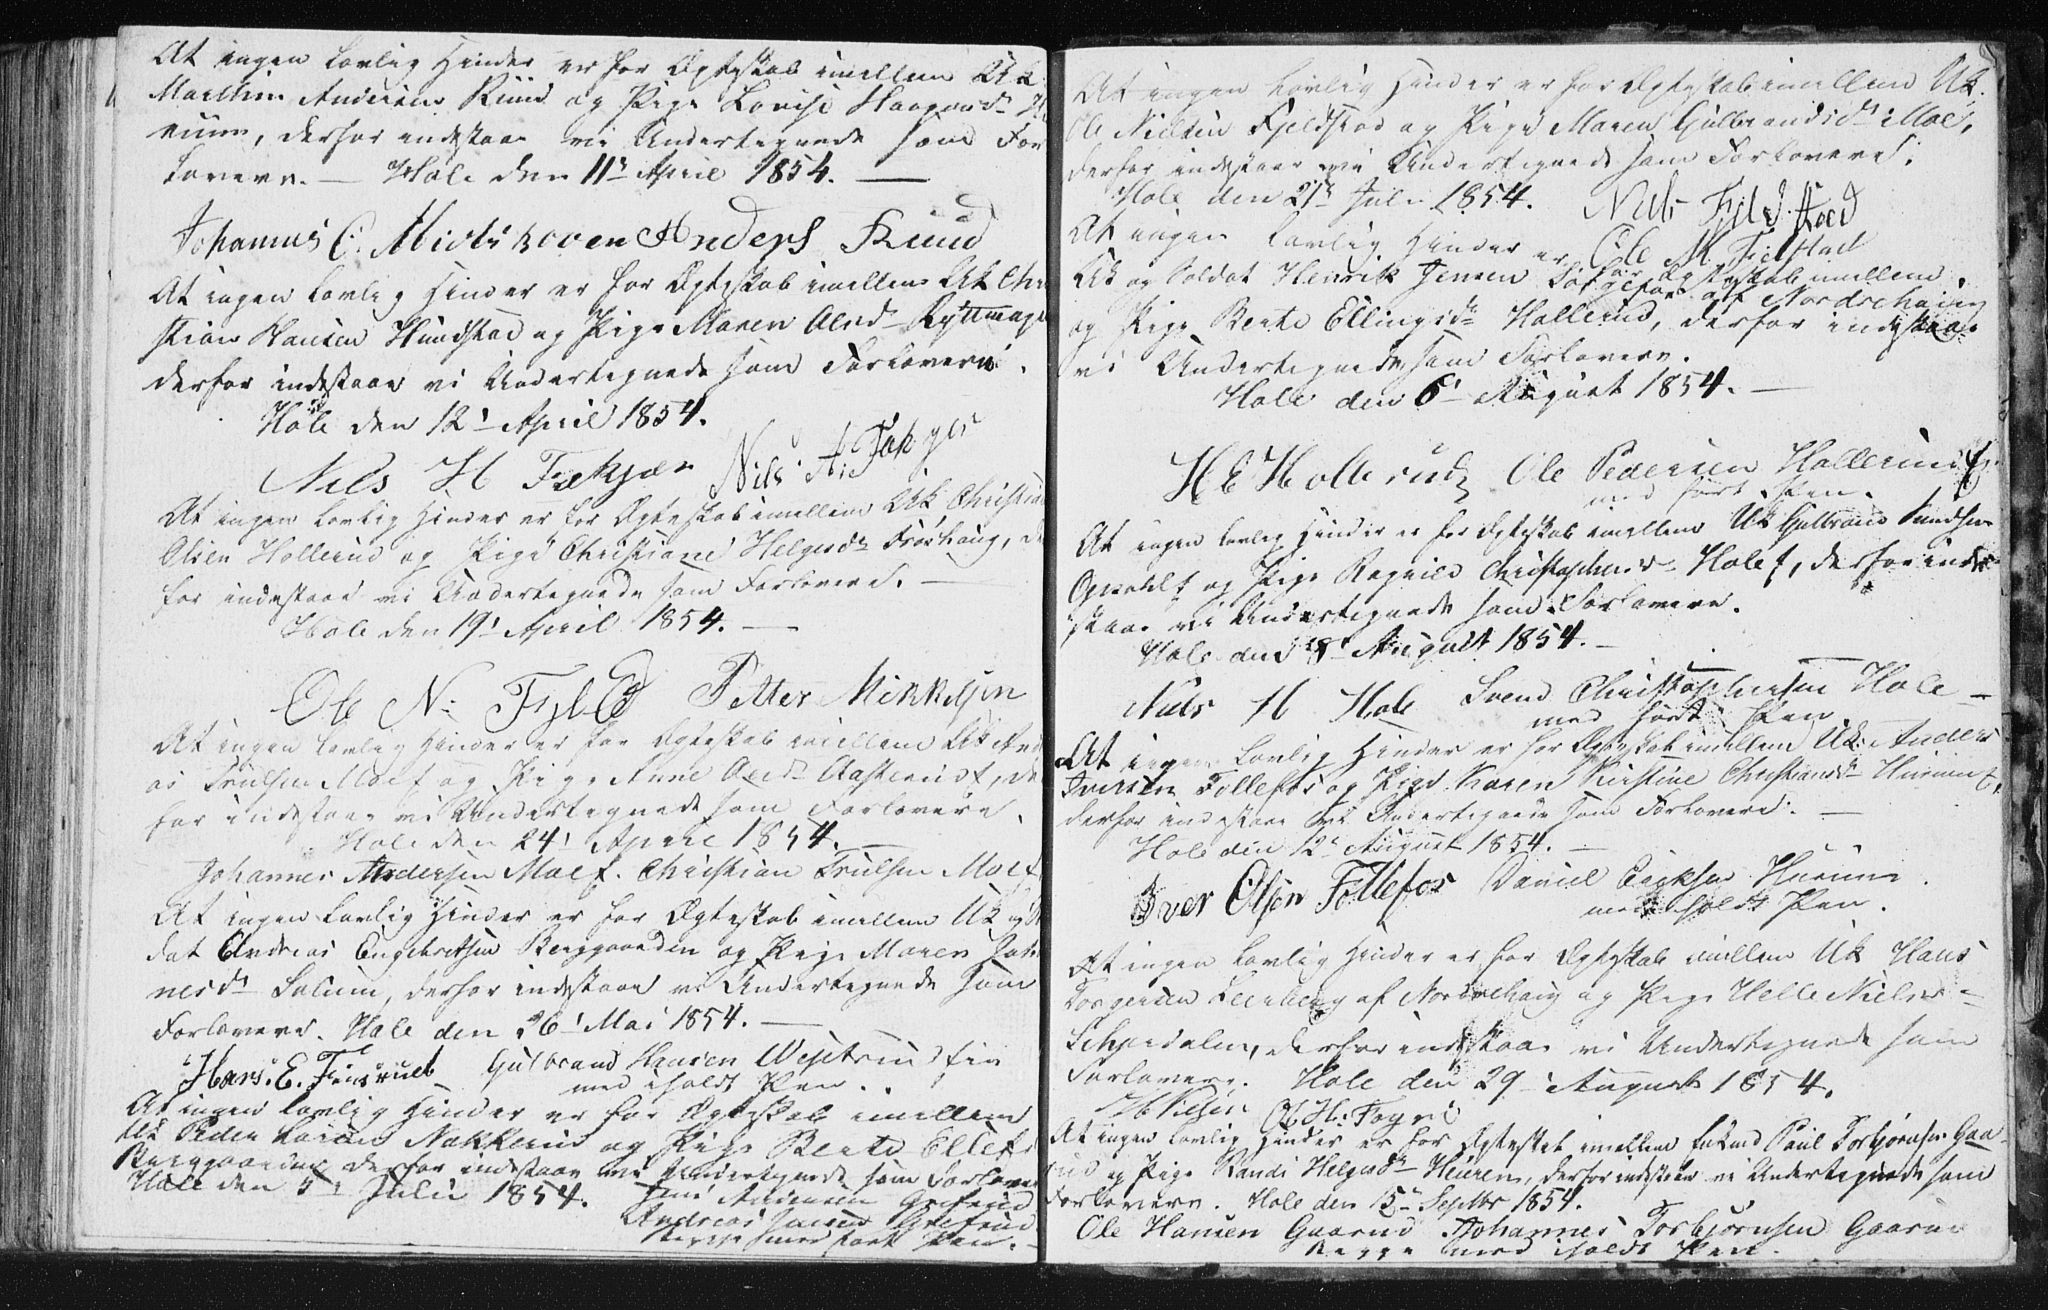 At ingen lovlig Hinder er for Ægteskab imellem Uk
Marthin Andersen Ruud og Pige Lovise Haagens
derfor indestaae vi Undertegnede som For
lovere. — Hole den 11' April 1854. —
Johannes C. Anders Ruud
At ingen lovlig Hinder er for Ægteskab imellem Uk Chri
stian Hansen Hundstad og Pige Maren Olsd Rytterage
derfor indestaae vi Undertegnede som Forlovere.
Hole den 12' April 1854.
Nils H Fækjær Nils A.
At ingen lovlig Hinder er for Ægteskab imellem Uk Christian
Olsen Hollerud og Pige Christiane Helgesd Frøshaug, der
for indestaae vi Undertegnede som Forlovere. —
Hole den 19' April 1854. —
Ole N: Petter Mikkelsen
At ingen lovlig Hinder er for Ægteskab imellem Uk And
as Trulsen Moe f og Pige Anne Andsd de
for indestaae vi Undertegnede som Forlovere.
Hole den 24' April 1854. —
Johannes Andersen Moe f. Christian Trulsen Moe f
At ingen lovlig Hinder er for Ægteskab imellem Uk og Sol
dat Andreas Engebretsen Berggaarden og Pige Maren Johan
nesd Solum, derfor indestaae vi Undertegnede som
Forlovere. Hole den 26' Mai 1854. —
Hans. E. Finsrud Gulbrand Hansen Westrud
med iholdt Pen.
At ingen lovlig Hinder er for Ægteskab imellem
Uk Peder Larsen Nakkerud og Pige Berte Ellefs
Berggaarden derfor indestaae vi Undertegnede som Forlovere
Hole den 5' Julii 1854. Jens Andersen Gresrud
Andreas Jensen Gresrud
Begge med ført Pen. —
At ingen lovlig Hinder er for Ægteskab imellem Uk.
Ole Nielsen Fjeldstad og Pige Maren Gulbrandsd Moe,
derfor indestaae vi Undertegnede som Forlovere.
Hole den 21' Juli 1854. Niels Fjeldstad
At ingen lovlig Hinder er for Ægteskab imellem Ole N. Fjelstad
Uk og Soldat Henrik Jensen af Norderhoug
og Pige Berte Ellingsd Hollerud, derfor indestaae
vi Undertegnede som Forlovere.
Hole den 6' August 1854. —
H E Hollerud Ole Pedersen Hollerud
med ført Pen.
At ingen lovlig Hinder er for Ægteskab imellem Uk Gulbrand Knudsen
Opsahl f og Pige Ragnild Christophersd Hole f, derfor inde
staae vi Undertegnede som Forlovere.
Hole den 8' August 1854. —
Niels H Hole Svend Christophersen Hole
med ført Pen
At ingen lovlig Hinder er for Ægteskab imellem Uk. Anders
Iversen Follefos og Pige Karen Kirstine Christiansd Hurum
derfor indestaae vi Undertegnede som Forlovere. —
Hole den 12' August 1854. —
Iver Olsen Follefos Daniel Ericksen Hurum.
med iholdt Pen.
At ingen lovlig Hinder er for Ægteskab imellem Uk Hans
Torgersen Leerberg af Norderhoug og Pige Helle Niels
Schjerdalen, derfor indestaae vi Undertegnede som
Forlovere. Hole den 29' August 1854.
H Nilsen Ol. H.
At ingen lovlig Hinder er for Ægteskab imellem Enkemd Paul Torbjørnsen Gaa
rud og Pige Randi Helgesd Heieren, derfor indestaae vi Undertegnede som
Forlovere. Hole den 15' Septbr 1854.
Ole Hansen Gaarud Johannes Torbjørnsen Gaarud
Begge med iholdt Pen.